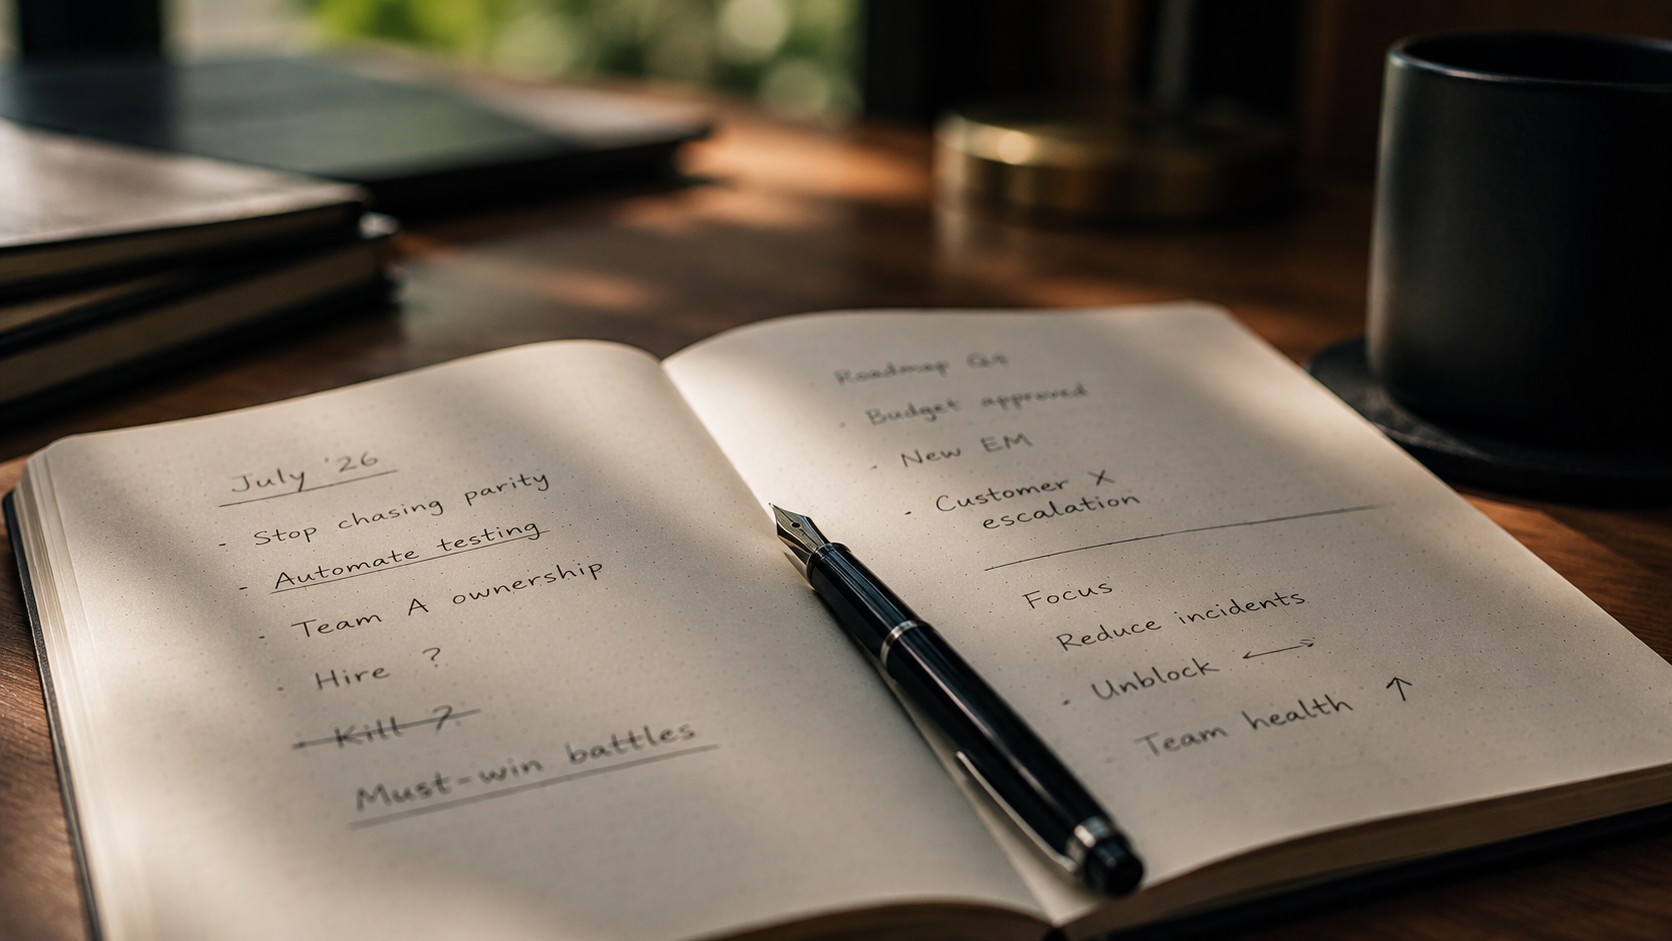 July '26
- Stop chasing parity
- Automate testing
- Team A ownership
- Hire ?
- Kill ?
Must-win battles
Roadmap
- Budget approved
- New EM
- Customer X
escalation
Focus
Reduce incidents
- Unblock ↔
- Team health ↑